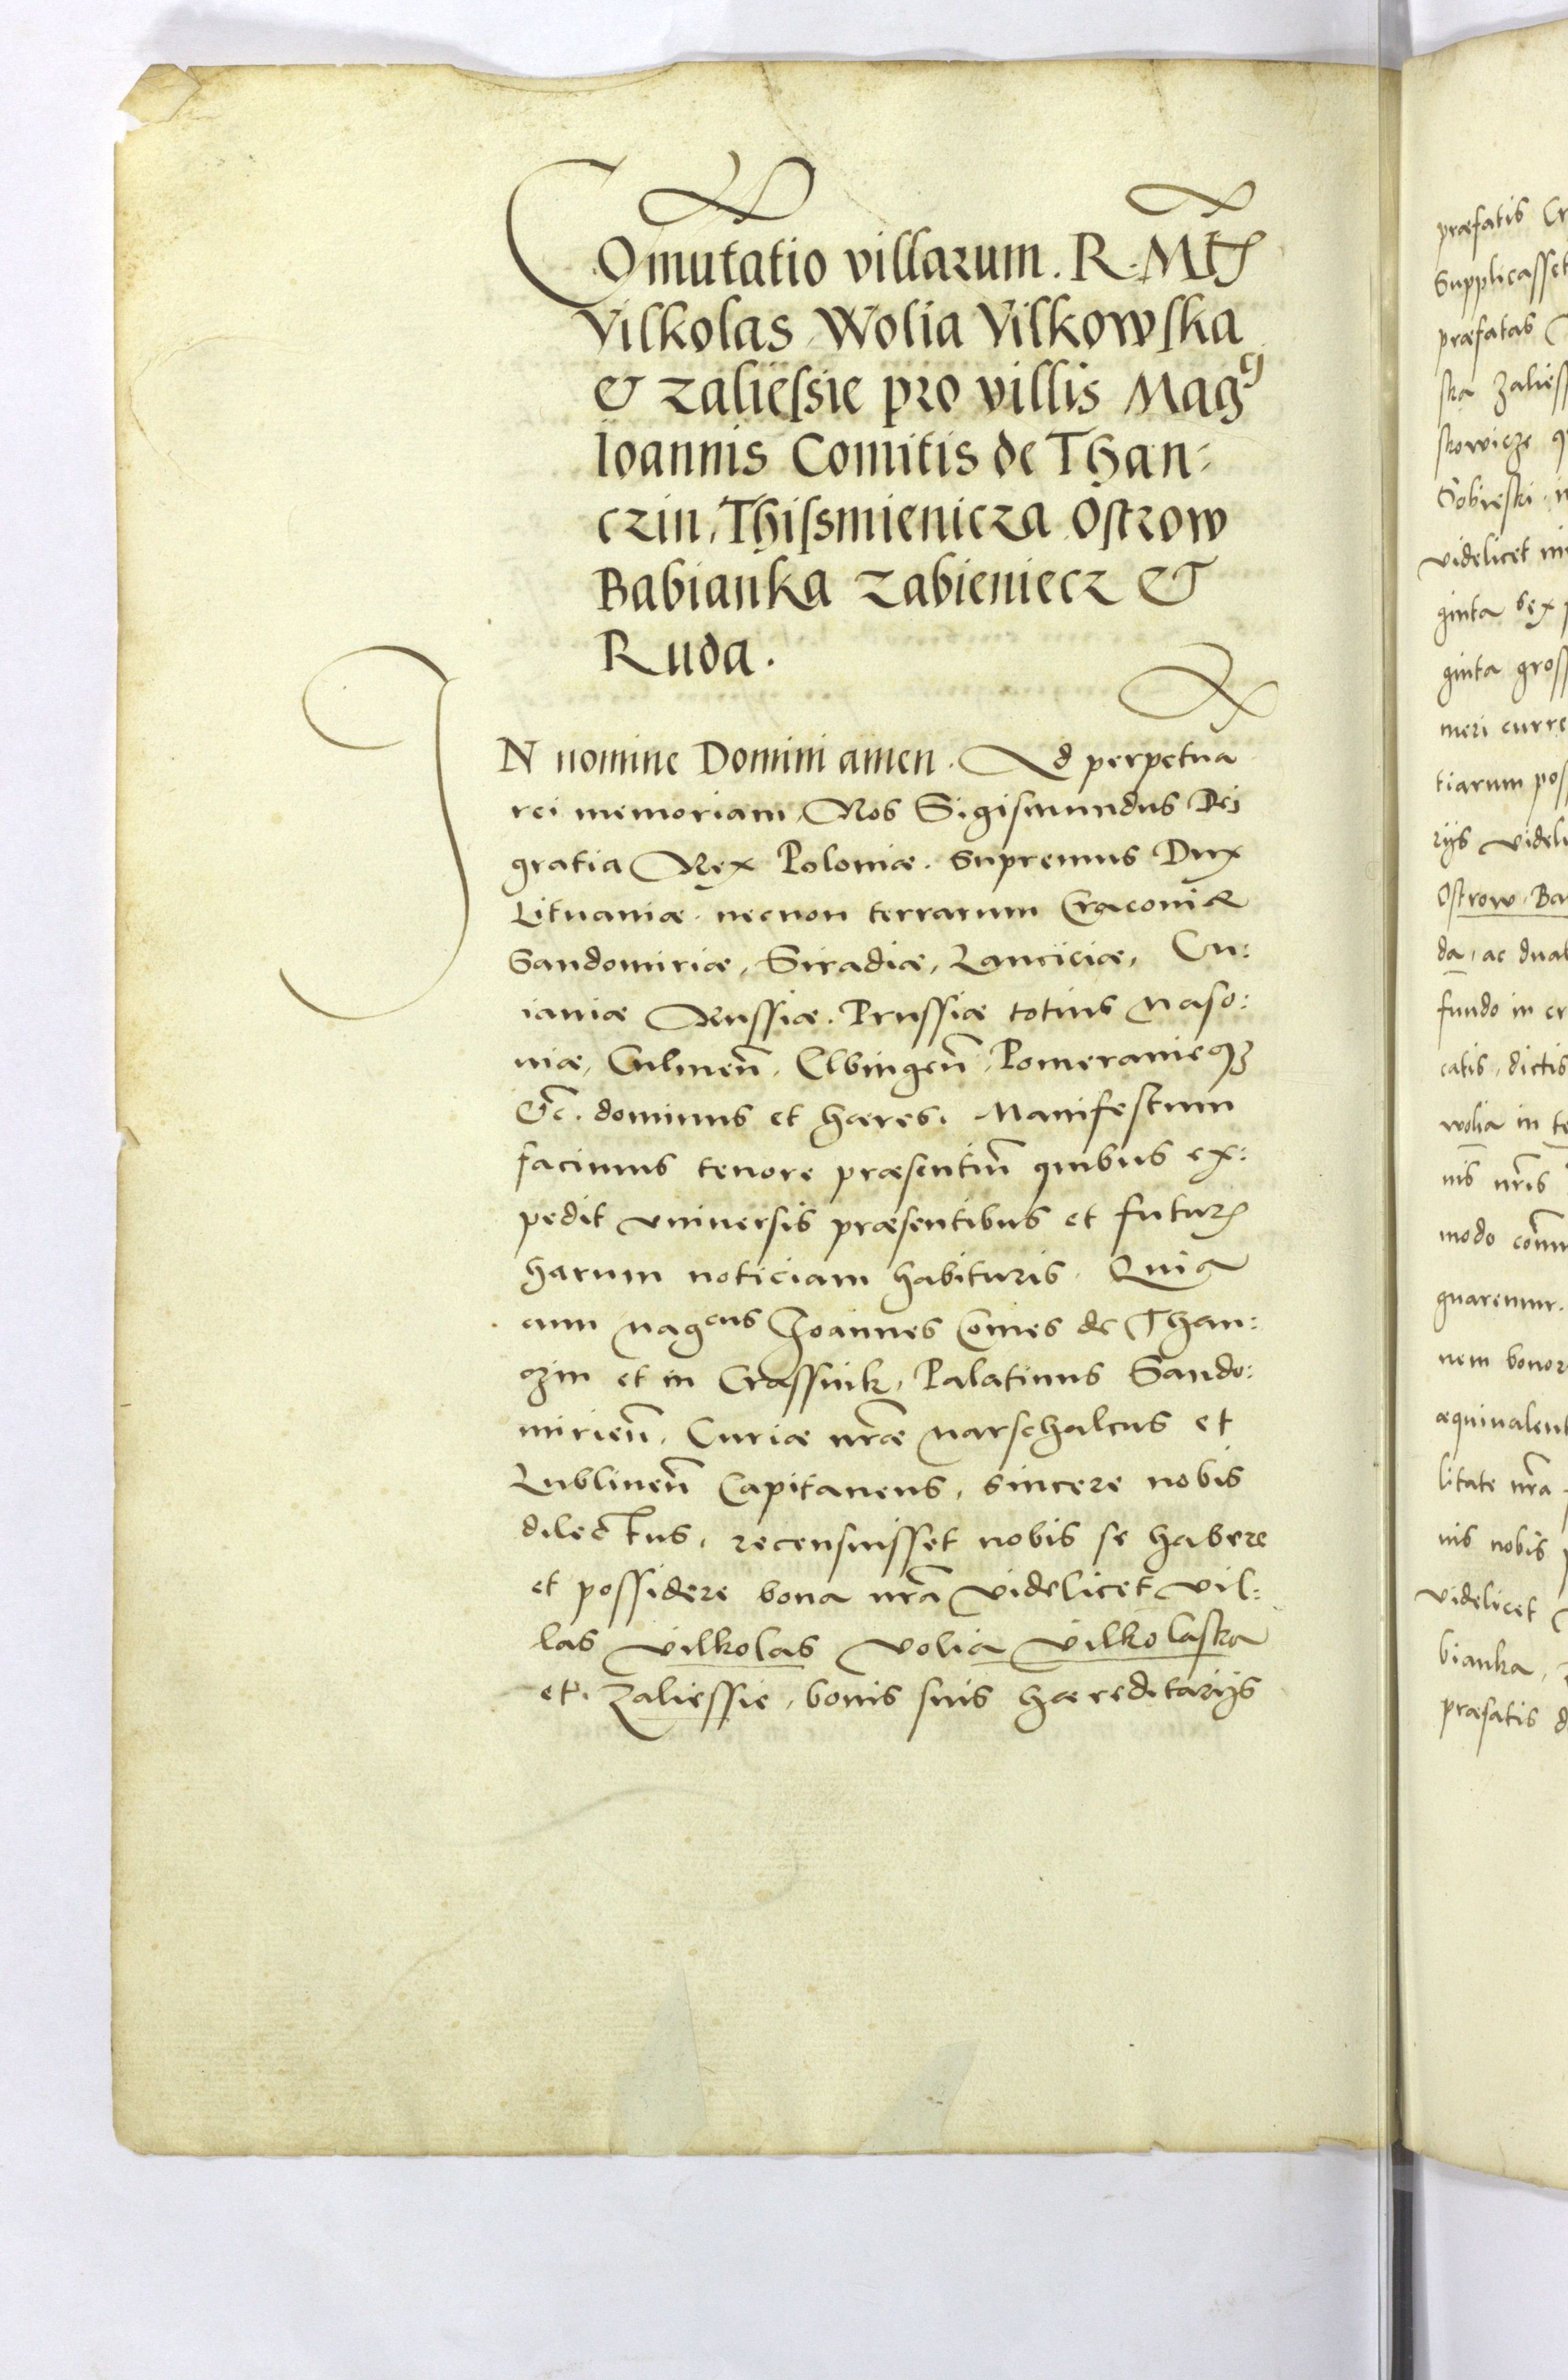 Comutatio villarum. R. Mtis
Vilkolas Wolia Vilkowska
& Zaliessie pro villis Magci
Ioannis Comitis de Than-
czin, Thissmienicza Ostrow
Babianka Zabieniecz &
Ruda.
IN nomine Domini amen. Ad perpetua
rei memoriam, Nos Sigismundus Dei
gratia Rex Poloniæ. Supremus Dux
Lituaniæ. necnon terrarum Cracoviæ
Sandomiriæ, Siradiæ, Lanciciæ, Cu:
iaviæ Russiæ. Prussiæ totius Maso:
viæ, Culmeñ, Elbingeñ, Pomeranieqꝫ
&c̃. dominus et hæres. Manifestum
facimus tenore præsentiũ quibus ex:
pedit vniuersis præsentibus et futurꝭ
harum noticiam habituris. Quia
cum Magcus Ioannes Comes de Than:
czin et in Crassnik, Palatinus Sando:
mirieñ, Curiæ nr̃æ Marschalcus et
Lublineñ Capitaneus, sincere nobis
dilectus, recensuisset nobis se habere
et possidere bona nr̃a videlicet vil:
las Vilkolas Volia Vilkolaska
et. Zaliessie, bonis suis hæreditarijs
præfatis
Supplicasset
præfatas
ska Zaliess
skowicze
Sobieski
videlicet
ginta sex
ginta gross
meri curre
tiarum pos
rijs videli
Ostrow Ba
da, ac dua
fundo in
catis, dictis
wolia in te
nis nr̃is
modo com̃
gnaremur.
nem bonor
æquiualent
litate nr̃a
nis nobis
videlicet
bianka,
præfatis